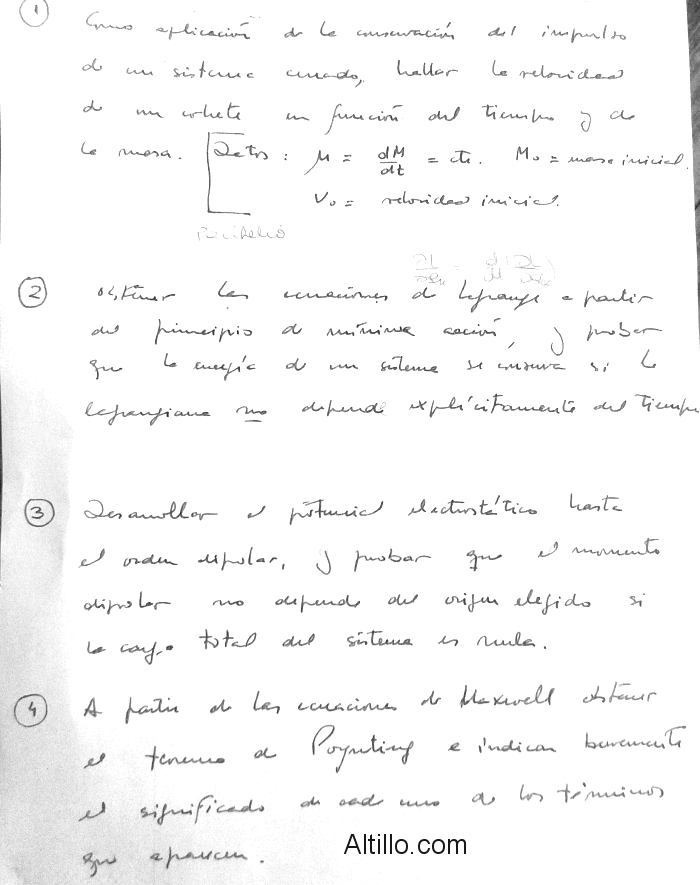 1 Como aplicación de la conservación del impulso
de un sistema cerrado, hallar la velocidad
de un cohete en función del tiempo y de
la masa. Datos: μ = dM/dt = cte. M₀ = masa inicial.
V₀ = velocidad inicial.
∂L/∂q d/dt (∂L/∂q)
2 Obtener las ecuaciones de Lagrange a partir
del principio de mínima acción, y probar
que la energía de un sistema se conserva si la
Lagrangiana no depende explícitamente del tiempo
3 Desarrollar el potencial electrostático hasta
el orden dipolar, y probar que el momento
dipolar no depende del origen elegido si
la carga total del sistema es nula.
4 A partir de las ecuaciones de Maxwell obtener
el teorema de Poynting e indicar brevemente
el significado de cada uno de los términos
que aparecen.
Altillo.com